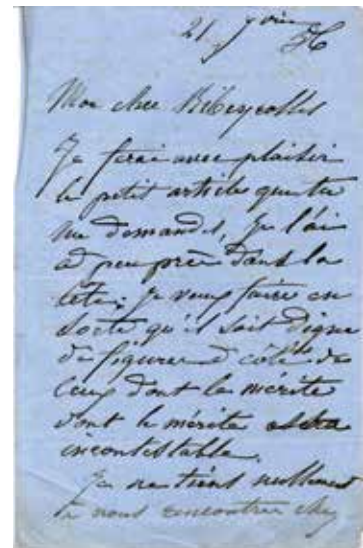 21 juin
Mon cher Ribeyrolles
Je ferai avec plaisir
le petit article que tu
me demandes, je l'ai
à peu près dans la
tête; je veux faire en
sorte qu'il soit digne
de figurer à côté de
ceux dont le mérite
dont le mérite
incontestable.
Je ne tiens nullement
à nous rencontrer chez